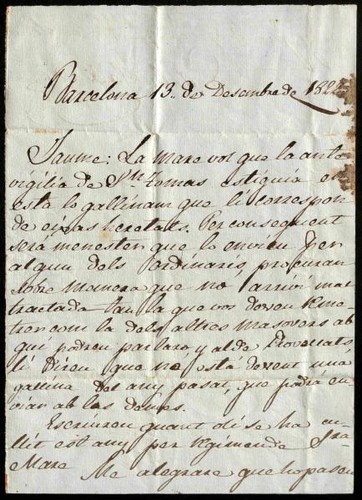 Barcelona 13. de Desembre de 182
Jaume: La Mare vol que la ante
vigilia de Sn. Tomas estiguia en
esta lo gallinam que li correspon
de eixas Per consequent
sera menester que lo envieu per
algun dels ordinaris, procuran
sobre manera que no arrivi mal
tractada tan la que vos deveu
com la dels altres Masovers ab
qui podreu parlaro, y al de
li direu que me está devent una
gallina del any pasat, que podrá en
viar ab las demes.
Escriureu quant oli se ha cu
llit est any per Regimende
Mare Me alegrare que ho paseu